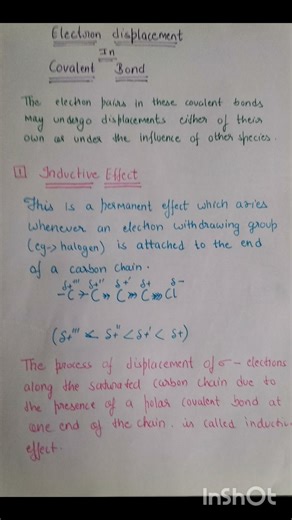 Electron displacement
In
Covalent Bond
The electron pairs in these covalent bonds
may undergo displacements either of their
own or under the influence of other species.
1 Inductive Effect
This is a permanent effect which aries
whenever an electron withdrawing group
(eg-> halogen) is attached to the end
of a carbon chain.
δ+''' δ+'' δ+' δ+ δ-
-C > C » C » C » Cl
(δ+''' < δ+'' < δ+' < δ+)
The process of displacement of σ- electrons
along the saturated carbon chain due to
the presence of a polar covalent bond at
one end of the chain. is called inductive
effect.
InShot